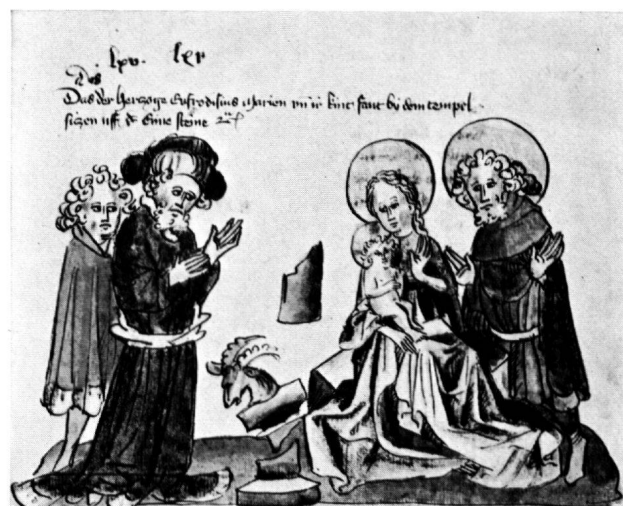 lxv. lxv
Das
Das der hertzoge Eufrodisius Marien vn ir kint fant by dem tempel
sitzen uff d steine